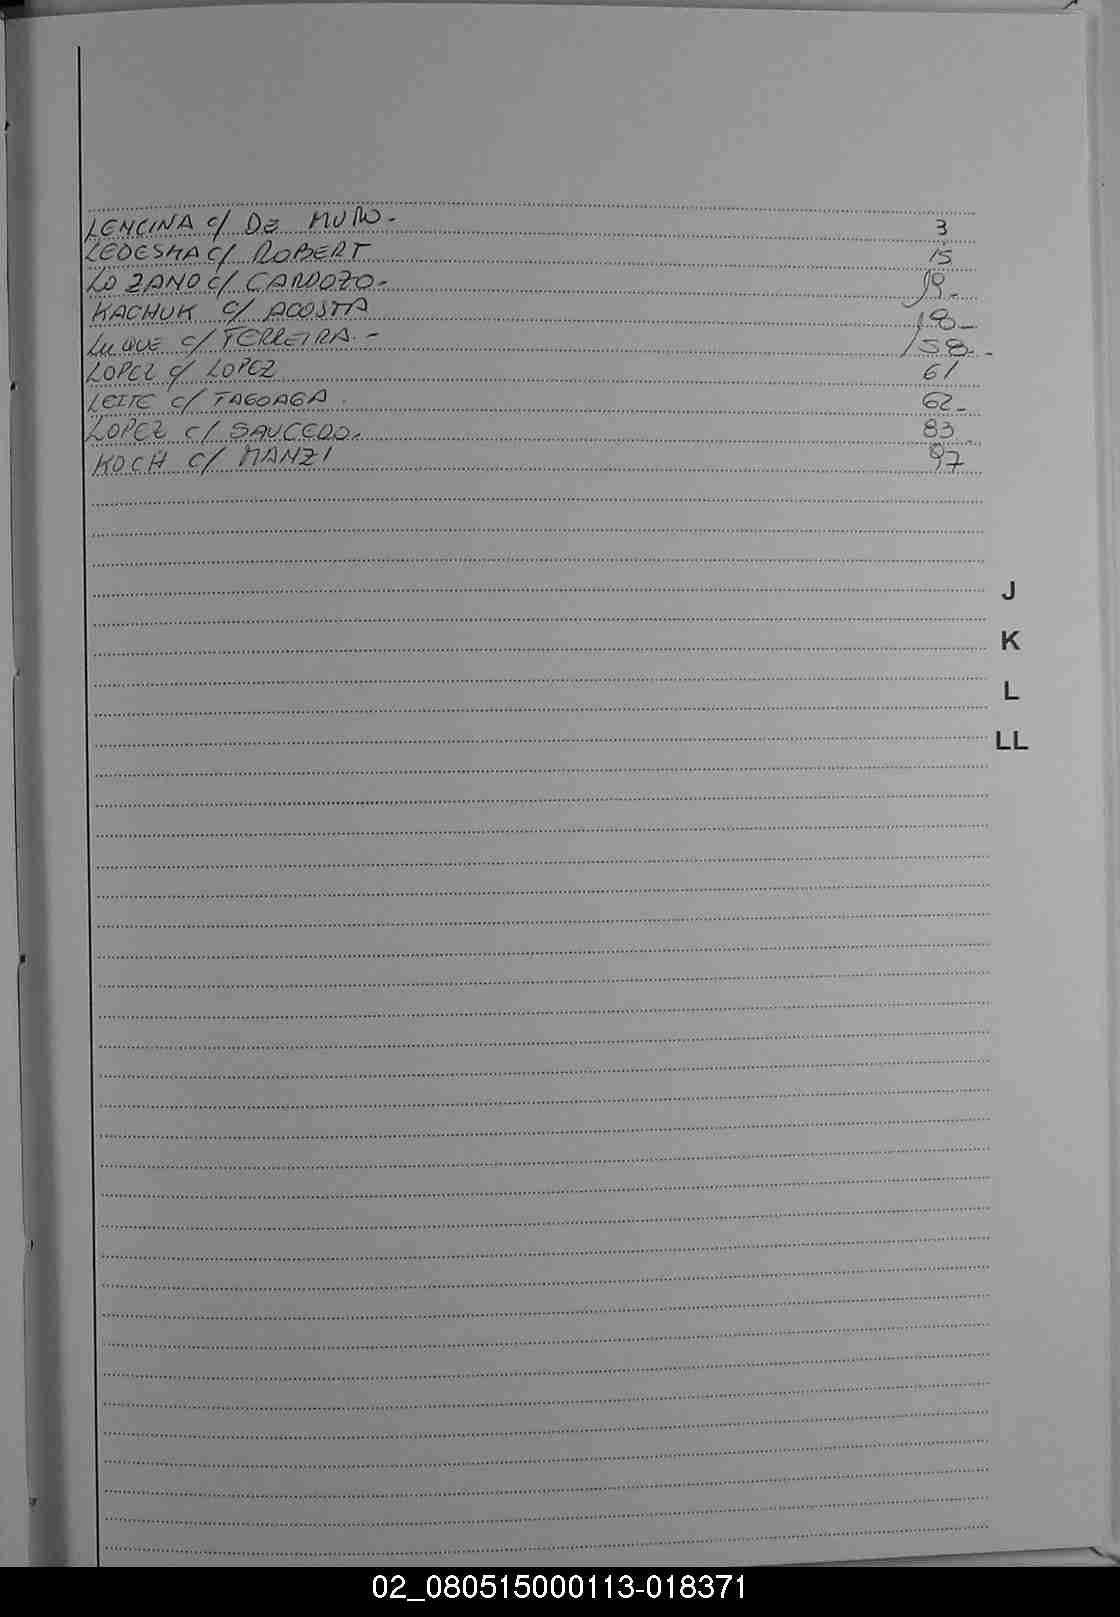 LENCINA c/ DE MURO.- 3
LEDESMA c/ ROBERT 15
LOZANO c/ CARDOZO.- 19.-
KACHUK c/ ACOSTA 18-
LUQUE c/ FERREIRA.- 58.-
LOPEZ c/ LOPEZ 61
LEITE c/ TAGOAGA. 62-
LOPEZ c/ SAUCEDO. 83
KOCH c/ MANZI 97
J
K
L
LL
02_080515000113-018371